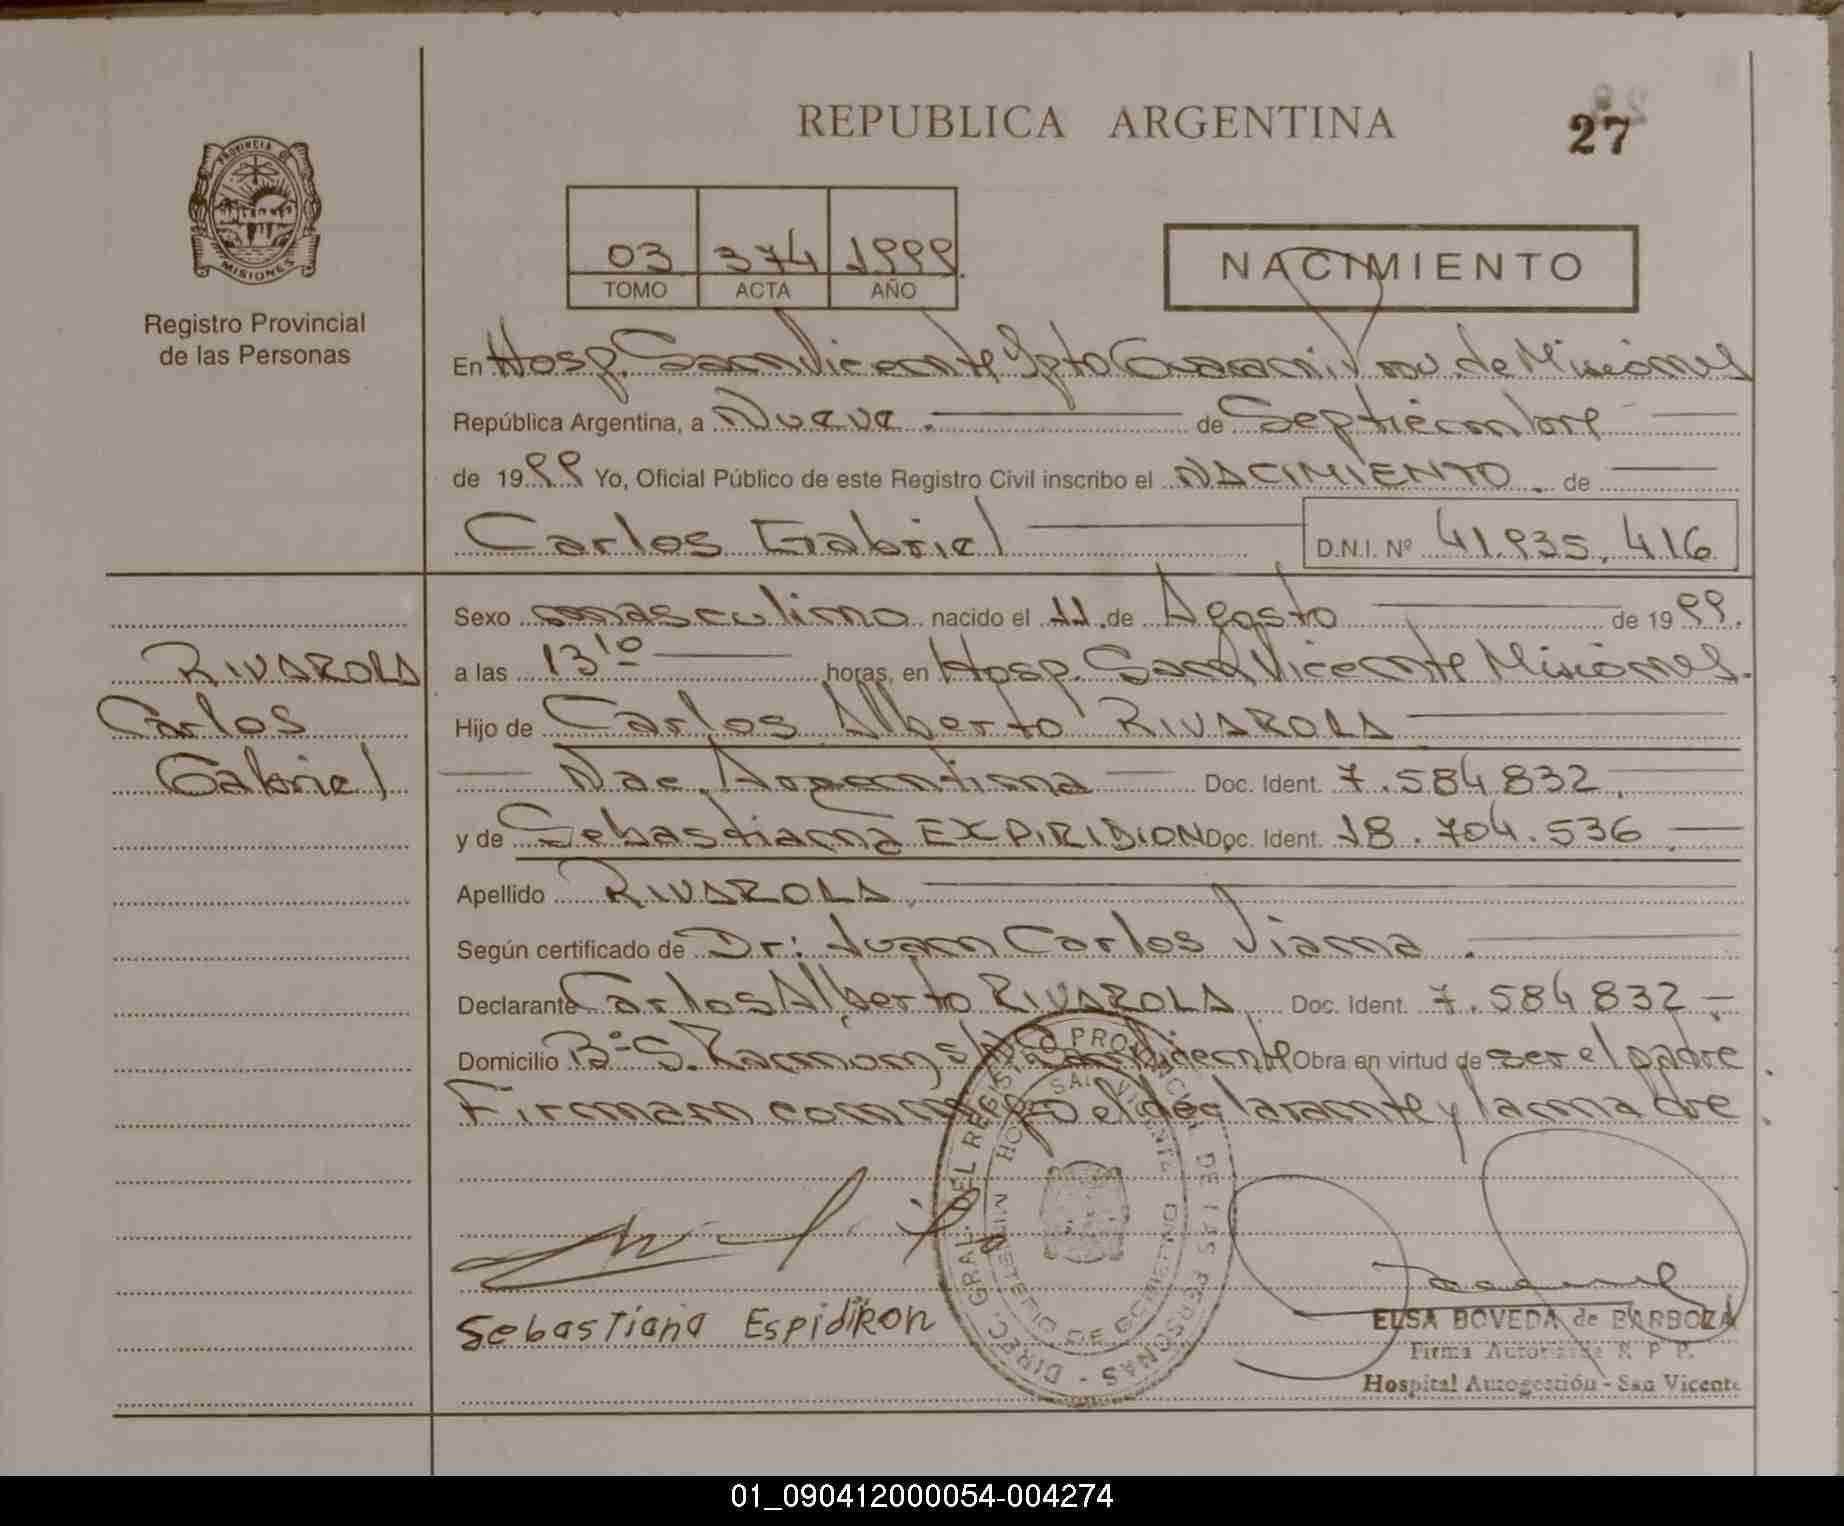 REPUBLICA ARGENTINA
27
PROVINCIA DE
MISIONES
Registro Provincial
de las Personas
03 374 1999
TOMO ACTA AÑO
NACIMIENTO
En Hosp. San Vicente Dpto Guarani Prov. de Misiones
República Argentina, a Nueve. de Septiembre
de 1999 Yo, Oficial Público de este Registro Civil inscribo el NACIMIENTO. de
Carlos Gabriel D.N.I. Nº 41.935.416
Sexo masculino nacido el 11 de Agosto de 1999.
RIVAROLA
Carlos
Gabriel
a las 13 10 horas, en Hosp. San Vicente Misiones.
Hijo de Carlos Alberto RIVAROLA
Nac. Argentina Doc. Ident. 7.584.832.
y de Sebastiana EXPIRIDION Doc. Ident. 18.704.536.
Apellido RIVAROLA.
Según certificado de Dr: Juan Carlos Viana.
Declarante Carlos Alberto RIVAROLA Doc. Ident. 7.584832.
Domicilio Bº S. Ramon s/Nº San Vicente Obra en virtud de ser el padre
Firman conmigo el declarante y la madre.
DIREC. GRAL. DEL REGISTRO PROVINCIAL DE LAS PERSONAS
HOSP. SAN VICENTE
MINISTERIO DE GOBIERNO
Sebastiana Espidiron
ELSA BOVEDA de BARBOZA
Firma Autorizada R. P. P.
Hospital Autogestión - San Vicente
01_090412000054-004274